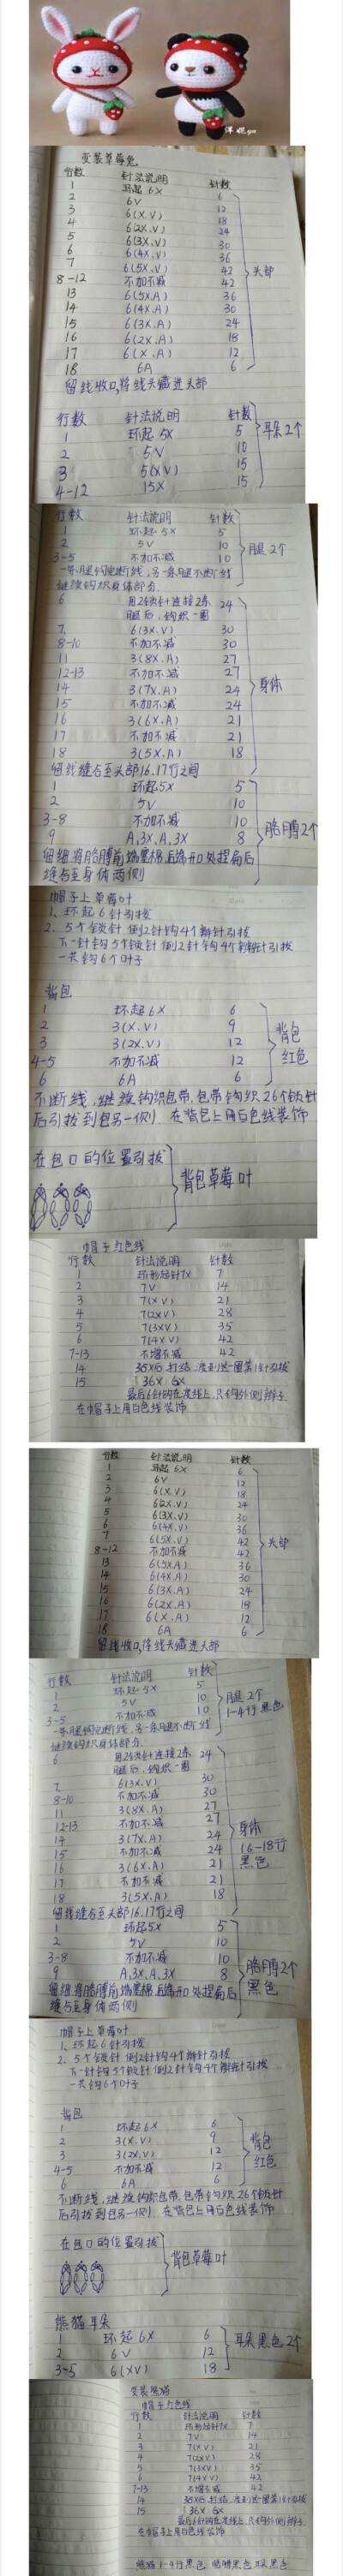 洋悦yu
变装草莓兔
行数 针法说明 针数
1 环起6X 6
2 6V 12
3 6(X.V) 18
4 6(2X.V) 24
5 6(3X.V) 30
6 6(4X.V) 36
7 6(5X.V) 42
8-12 不加不减 42 头部
13 6(5X.A) 36
14 6(4X.A) 30
15 6(3X.A) 24
16 6(2X.A) 18
17 6(X.A) 12
18 6A 6
留线收口,将线头藏进头部
行数 针法说明 针数
1 环起5X 5 耳朵2个
2 5V 10
3 5(XV) 15
4-12 15X 15
行数 针法说明 针数
1 环起5X 5
2 5V 10 腿2个
3-5 不加不减 10
一条腿钩完断线,另一条腿不断线
继续钩织身体部分.
6 用2锁针连接2条 24
腿后,钩织一圈
7 6(3X.V) 30
8-10 不加不减 30
11 3(8X.A) 27
12-13 不加不减 27
14 3(7X.A) 24 身体
15 不加不减 24
16 3(6X.A) 21
17 不加不减 21
18 3(5X.A) 18
留线缝合至头部16.17行之间
1 环起5X 5
2 5V 10
3-8 不加不减 10 胳膊2个
9 A,3X,A,3X 8
留线,将胳膊前端塞棉,后端开口处捏扁后
缝合至身体两侧
帽子上草莓叶
1、环起6针引拔
2、5个锁针 倒2针钩4个短针引拔
下一针钩5个锁针 倒2针钩4个短针引拔
一共钩6个叶子
背包
1 环起6X 6
2 3(X.V) 9 背包
3 3(2X.V) 12 红色
4-5 不加不减 12
6 6A 6
不断线,继续钩织包带,包带钩织26个锁针
后引拔到包另一侧.在背包上用白色线装饰
在包口的位置引拔 背包草莓叶
帽子红色线
行数 针法说明 针数
1 环形起针7X 7
2 7V 14
3 7(XV) 21
4 7(2XV) 28
5 7(3XV) 35
6 7(4XV) 42
7-13 不增不减 42
15 36X 6X
最后6针钩在漂线上,只钩外侧辫子
在帽子上用白色线装饰
行数 针法说明 针数
1 环起6X 6
2 6V 12
3 6(X.V) 18
4 6(2X.V) 24
5 6(3X.V) 30
6 6(4X.V) 36
7 6(5X.V) 42
8-12 不加不减 42 头部
13 6(5X.A) 36
14 6(4X.A) 30
15 6(3X.A) 24
16 6(2X.A) 18
17 6(X.A) 12
18 6A 6
留线收口,将线头藏进头部
行数 针法说明 针数
1 环起5X 5
2 5V 10 腿2个
3-5 不加不减 10 1-4行黑色
一条腿钩完断线,另一条腿不断线
继续钩织身体部分.
6 用2锁针连接2条 24
腿后,钩织一圈
7 6(3X.V) 30
8-10 不加不减 30
11 3(8X.A) 27
12-13 不加不减 27
14 3(7X.A) 24 身体
15 不加不减 24 16-18行
16 3(6X.A) 21 黑色
17 不加不减 21
18 3(5X.A) 18
留线缝合至头部16.17行之间
1 环起5X 5
2 5V 10
3-8 不加不减 10 胳膊2个
9 A,3X,A,3X 8 黑色
留线,将胳膊前端塞棉,后端开口处捏扁后
缝合至身体两侧
帽子上草莓叶
1、环起6针引拔
2、5个锁针 倒2针钩4个短针引拔
下一针钩5个锁针 倒2针钩4个短针引拔
一共钩6个叶子
背包
1 环起6X 6
2 3(X.V) 9 背包
3 3(2X.V) 12 红色
4-5 不加不减 12
6 6A 6
不断线,继续钩织包带,包带钩织26个锁针
后引拔到包另一侧.在背包上用白色线装饰
在包口的位置引拔 背包草莓叶
熊猫耳朵
1 环起6X 6
2 6V 12 耳朵黑色2个
3-5 6(XV) 18
变装熊猫
帽子红色线
行数 针法说明 针数
1 环形起针7X 7
2 7V 14
3 7(XV) 21
4 7(2XV) 28
5 7(3XV) 35
6 7(4XV) 42
7-13 不增不减 42
15 36X 6X
最后6针钩在漂线上,只钩外侧辫子
在帽子上用白色线装饰